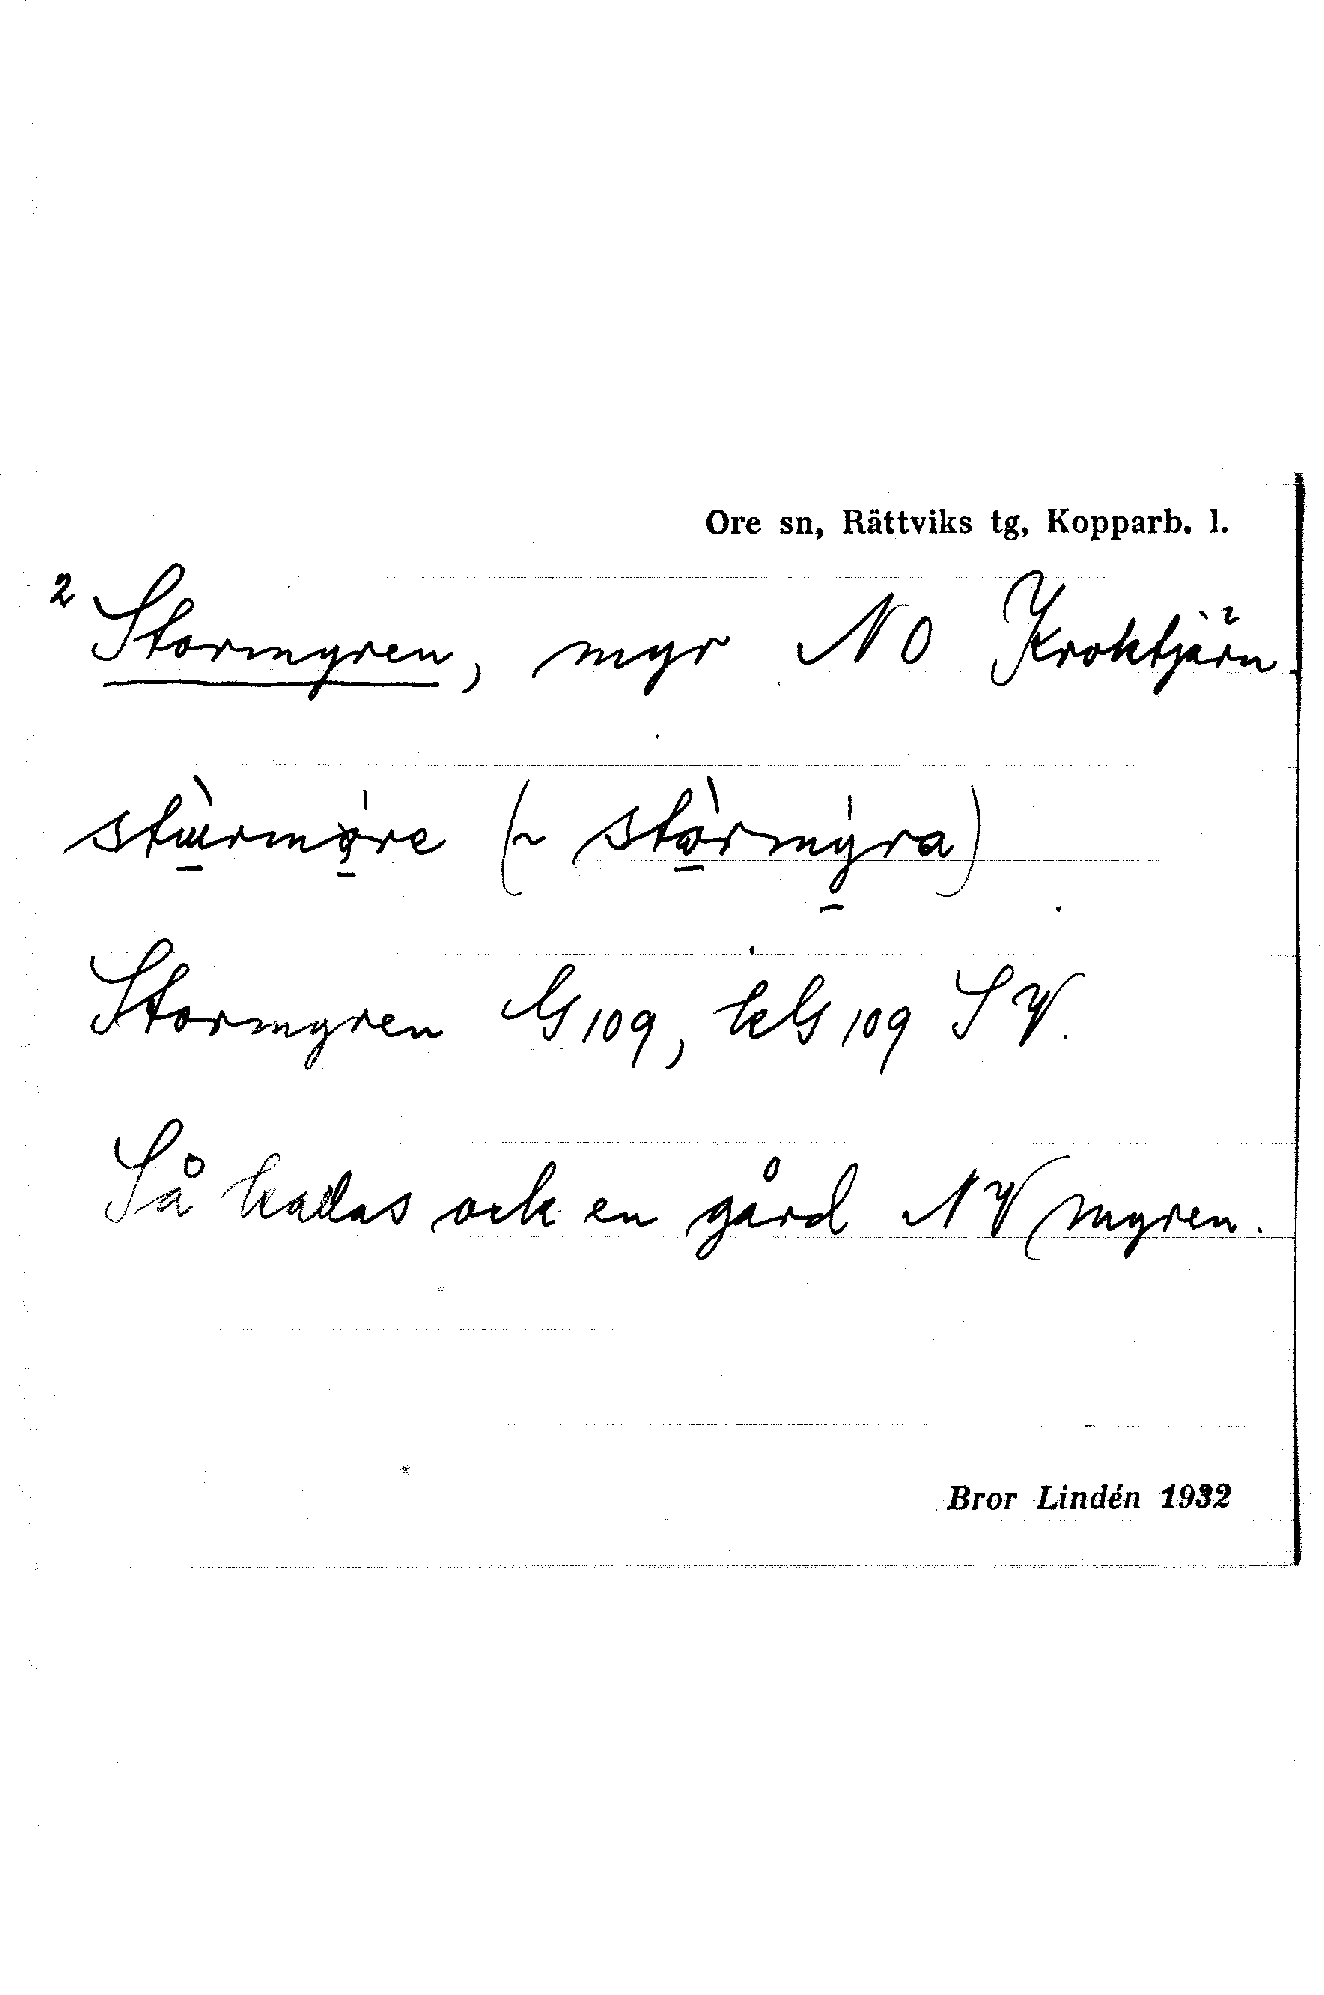 Ore sn, Rättviks tg, Kopparb. l.
2 Stormyren, myr NO Kroktjärn.
stùrmøre (~ stòrmyra)
Stormyren G 109, kG 109 SV.
Så kallas ock en gård NV myren.
Bror Lindén 1932